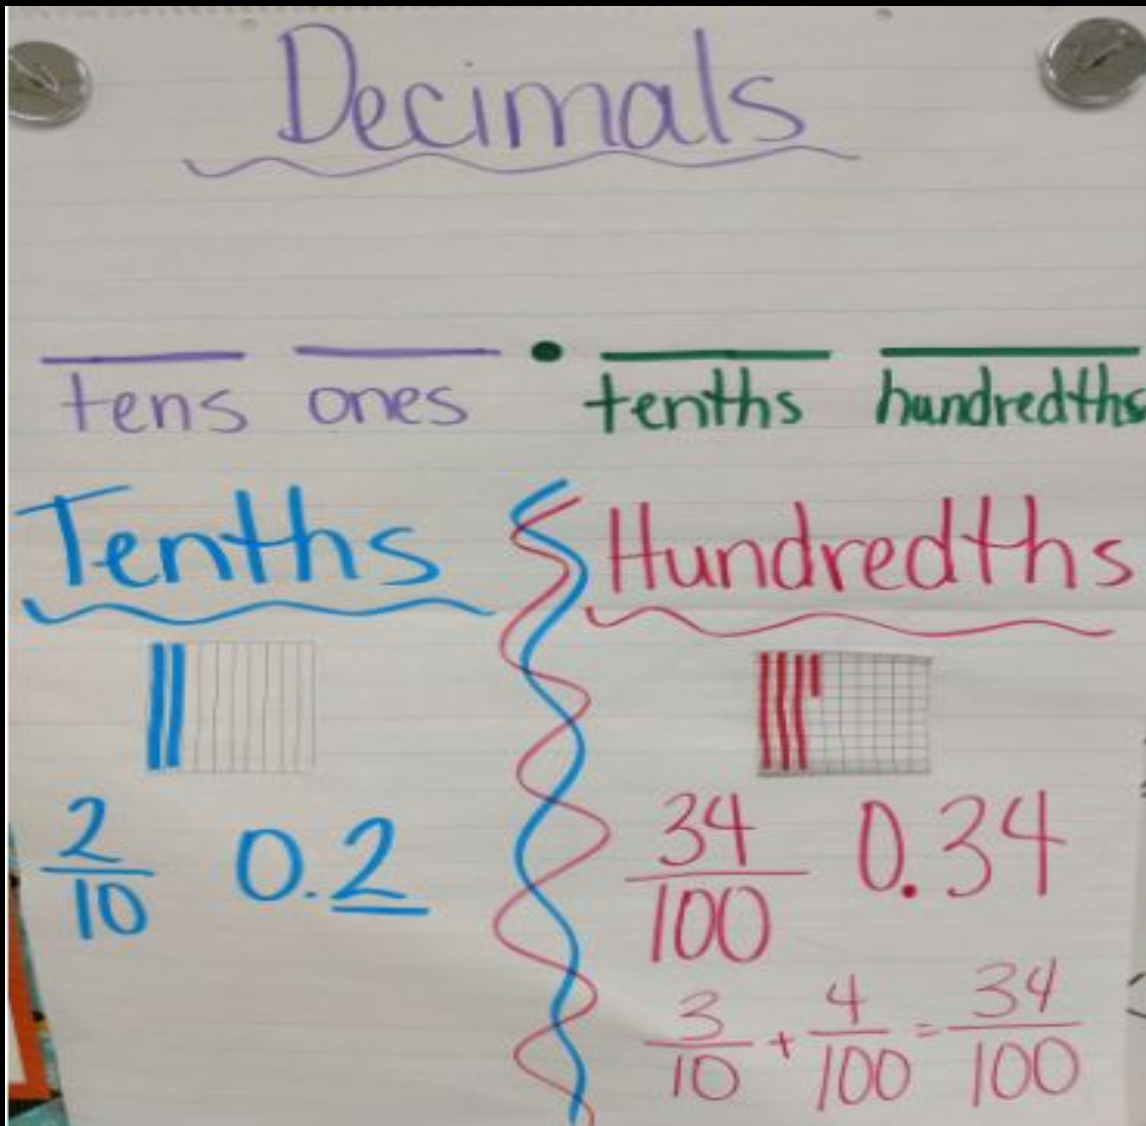 Decimals
tens ones . tenths hundredths
Tenths
2/10 0.2
Hundredths
34/100 0.34
3/10 + 4/100 = 34/100